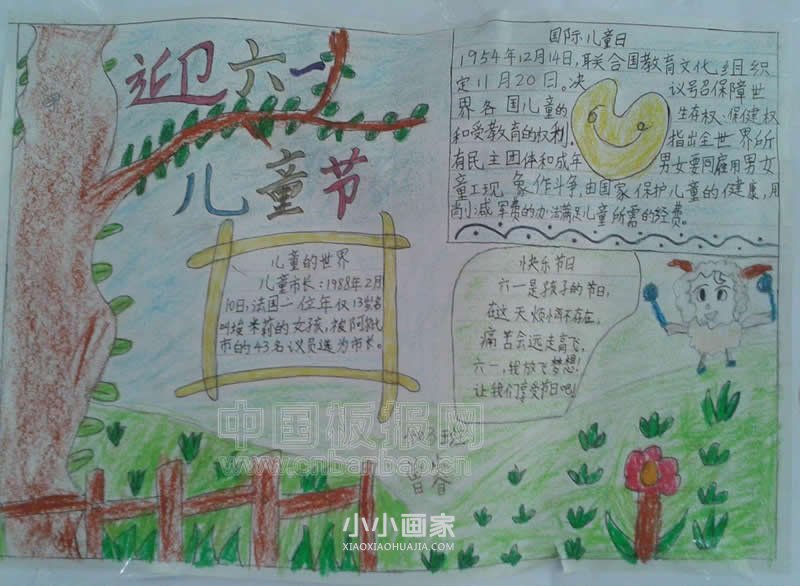 迎六一
儿童节
国际儿童日
1954年12月14日,联合国教育文化组织
定11月20日。决 议号召保障世
界各国儿童的 生存权、保健权
和受教育的权利, 指出全世界所
有民主团体和成年 男女要同雇用男女
童工现象作斗争,由国家保护儿童的健康,用
减军费的办法满足儿童所需的经费。
儿童的世界
儿童市长:1988年2月
10日,法国一位年仅13岁名
叫埃米莉的女孩,被阿
市的43名议员选为市长。
快乐节日
六一是孩子的节日,
在这天烦恼不存在,
痛苦会远走高飞,
六一,我放飞梦想!
让我们享受节日吧!
中国板报网
www.cnbanbao.cn
小小画家
XIAOXIAOHUAJIA.COM